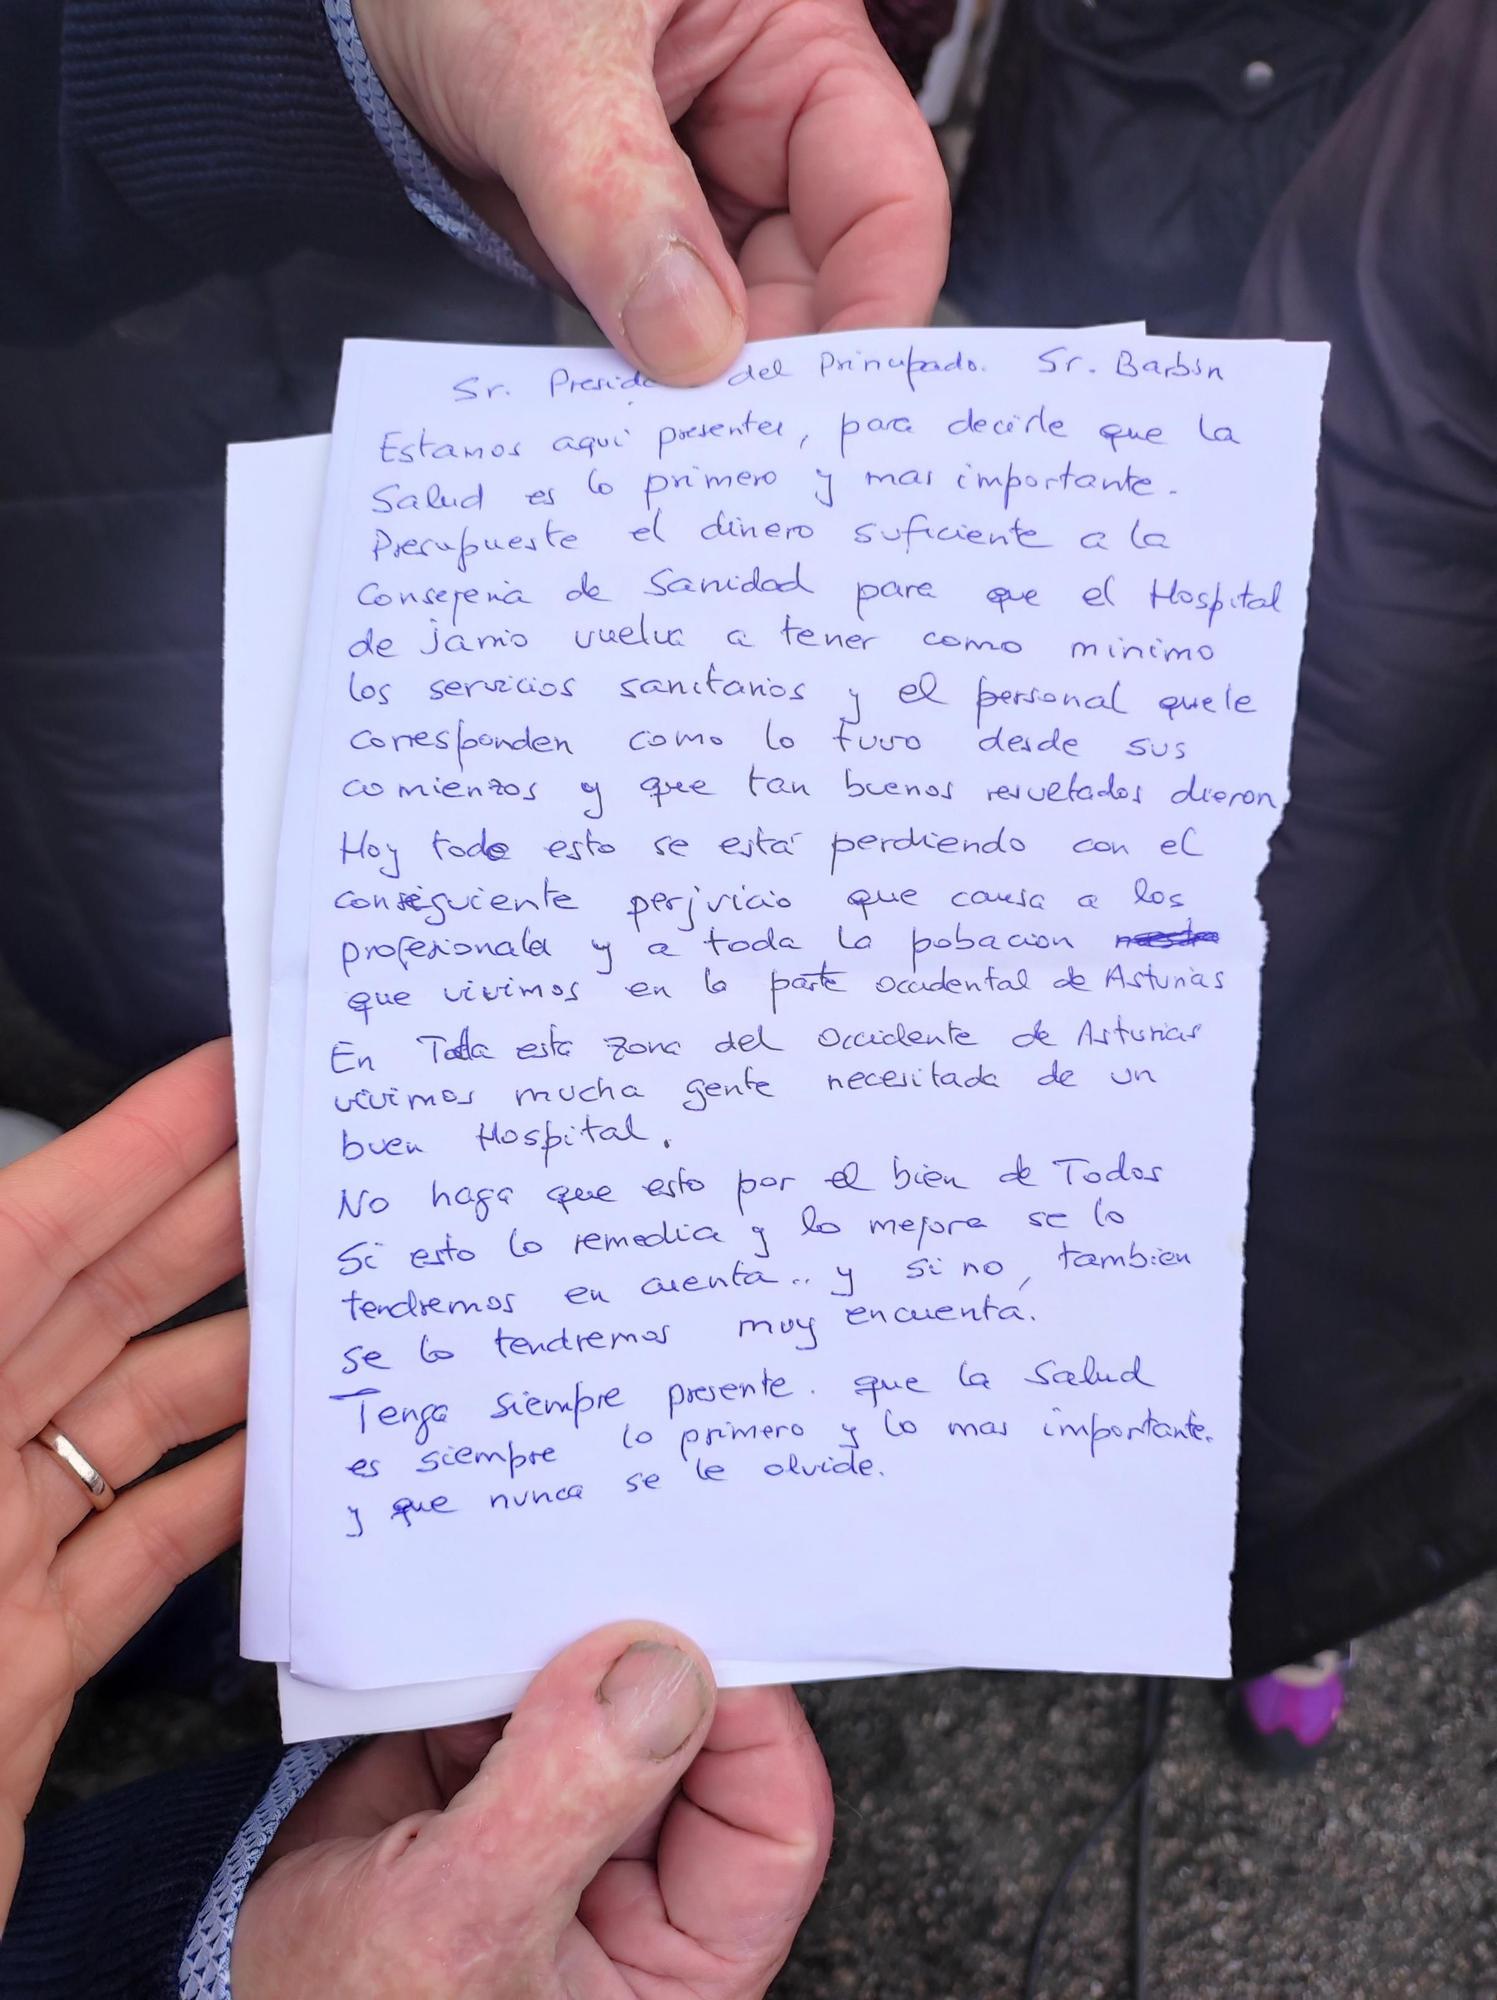 Sr. Preside del Principado. Sr. Barbón
Estamos aquí presentes, para decirle que la
Salud es lo primero y mas importante.
Presupueste el dinero suficiente a la
Consejeria de Sanidad para que el Hospital
de jarrio vuelva a tener como minimo
los servicios sanitarios y el personal que le
corresponden como lo tuvo desde sus
comienzos y que tan buenos resultados dieron
Hoy todo esto se está perdiendo con el
consiguiente perjuicio que causa a los
profesionales y a toda la pobacion
que vivimos en la parte occidental de Asturias
En Toda esta zona del occidente de Asturias
vivimos mucha gente necesitada de un
buen Hospital.
No haga que esto por el bien de Todos
Si esto lo remedia y lo mejora se lo
tendremos en cuenta.. y si no, tambien
se lo tendremos muy encuenta.
Tenga siempre presente. que la Salud
es siempre lo primero y lo mas importante.
y que nunca se le olvide.